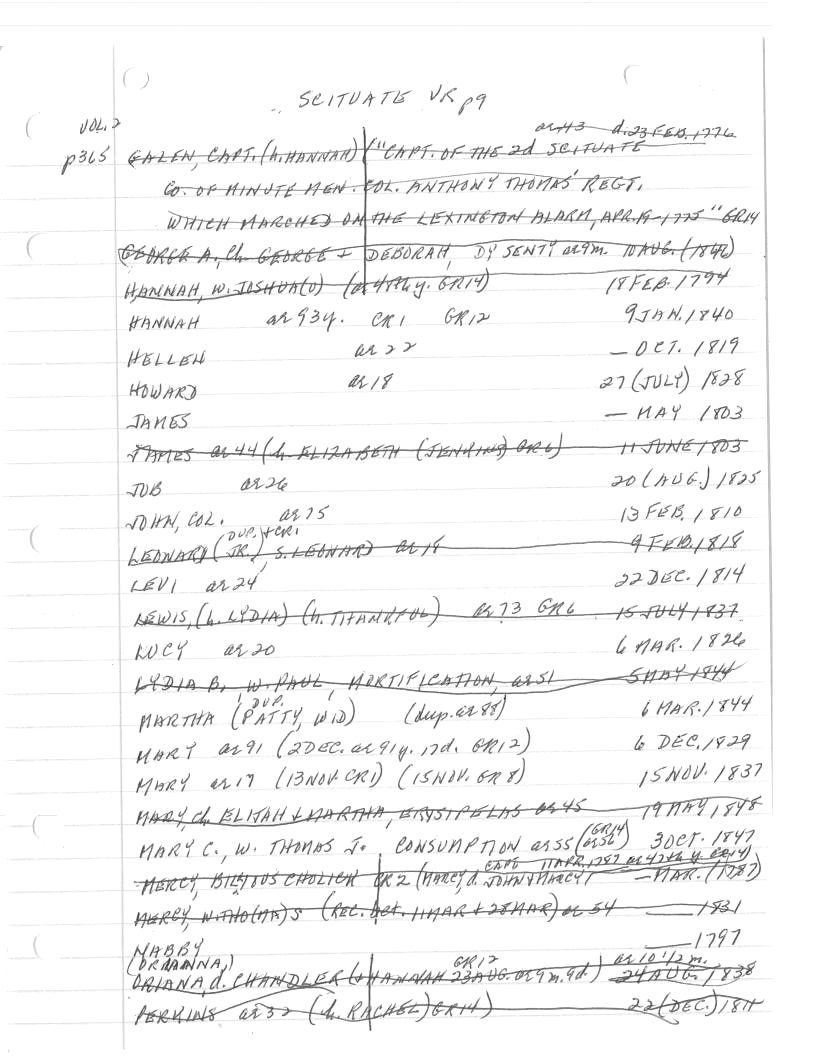 SCITUATE VR p9
VOL. 2
ae 43 d. 23 FEB. 1776
p365 GALEN, CAPT. (h. HANNAH) ("CAPT. OF THE 2d SCITUATE
CO. OF MINUTE MEN. COL. ANTHONY THOMAS' REGT.
WHICH MARCHED ON THE LEXINGTON ALARM, APR. 19-1775" GR14
GEORGE A., ch. GEORGE + DEBORAH, DYSENTY ae 9m. 10 AUG. (1846)
HANNAH, w. JOSHUA (ae 48th y. GR14) 18 FEB. 1794
HANNAH ae 93y. CR1 GR12 9 JAN. 1840
HELLEN ae 22 — OCT. 1819
HOWARD ae 18 27 (JULY) 1828
JAMES — MAY 1803
JAMES ae 44 (h. ELIZABETH (JENKINS) GR6) 11 JUNE 1803
JOB ae 26 20 (AUG.) 1825
JOHN, COL. ae 75 13 FEB. 1810
DUP. + CR1
LEONARD (JR.), S. LEONARD ae 18 9 FEB. 1818
LEVI ae 24 22 DEC. 1814
LEWIS, (h. LYDIA) (h. THANKFUL) ae 73 GR6 15 JULY 1837
LUCY ae 20 6 MAR. 1826
LYDIA B., w. PAUL, MORTIFICATION, ae 51 5 MAY 1844
DUP.
MARTHA (PATTY, WID) (dup. ae 88) 6 MAR. 1844
MARY ae 91 (2 DEC. ae 91y. 17d. GR12) 6 DEC. 1829
MARY ae 17 (13 NOV. CR1) (15 NOV. GR8) 15 NOV. 1837
MARY, ch. ELIJAH + MARTHA, ERYSIPELAS ae 45 19 MAY 1848
MARY C., W. THOMAS J. CONSUMPTION ae 55 (GR14 ae 56) 3 OCT. 1847
11 APR. 1787 ae 42th y. GR14)
MERCY, BILYOUS CHOLICK CR2 (MARCY, d. JOHN + MARCY) — MAR. (1787)
MERCY, W. THO(MA)S (REC. bet. 11 MAR + 28 MAR) ae 54 —— 1831
NABBY —— 1797
GR12 ae 10 1/2 m.
ORIANA, d. CHANDLER (+ HANNAH 23 AUG. ae 9m. 9d.) 24 AUG. 1838
PERKINS ae 32 (h. RACHEL) GR14) 22 (DEC.) 1811